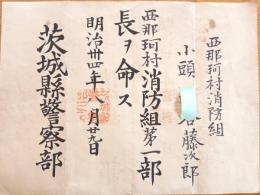 西那珂村消防組
小頭 藤次郎
西那珂村消防組第一部
長ヲ命ス
明治卅四年八月廿九日
茨城縣警察部